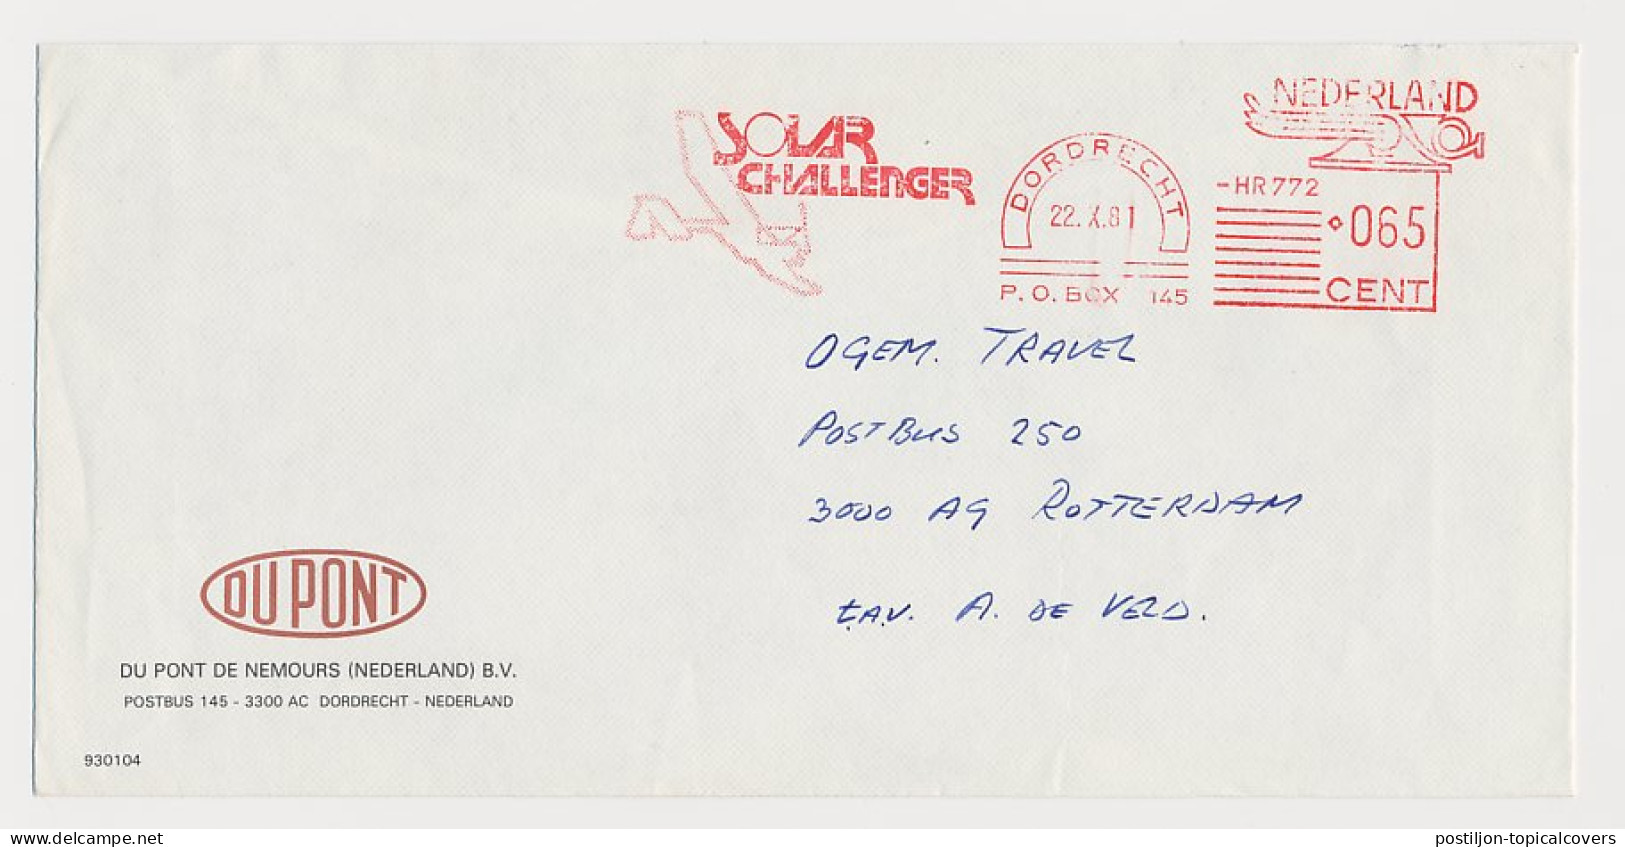 NEDERLAND
SOLAR
CHALLENGER
DORDRECHT
22.X.81
P.O. BOX 145
-HR772
065
CENT
OGEM. TRAVEL
POSTBUS 250
3000 AG ROTTERDAM
t.a.v. A. DE VELD.
DU PONT
DU PONT DE NEMOURS (NEDERLAND) B.V.
POSTBUS 145 - 3300 AC DORDRECHT - NEDERLAND
930104
www.delcampe.net
postiljon-topicalcovers